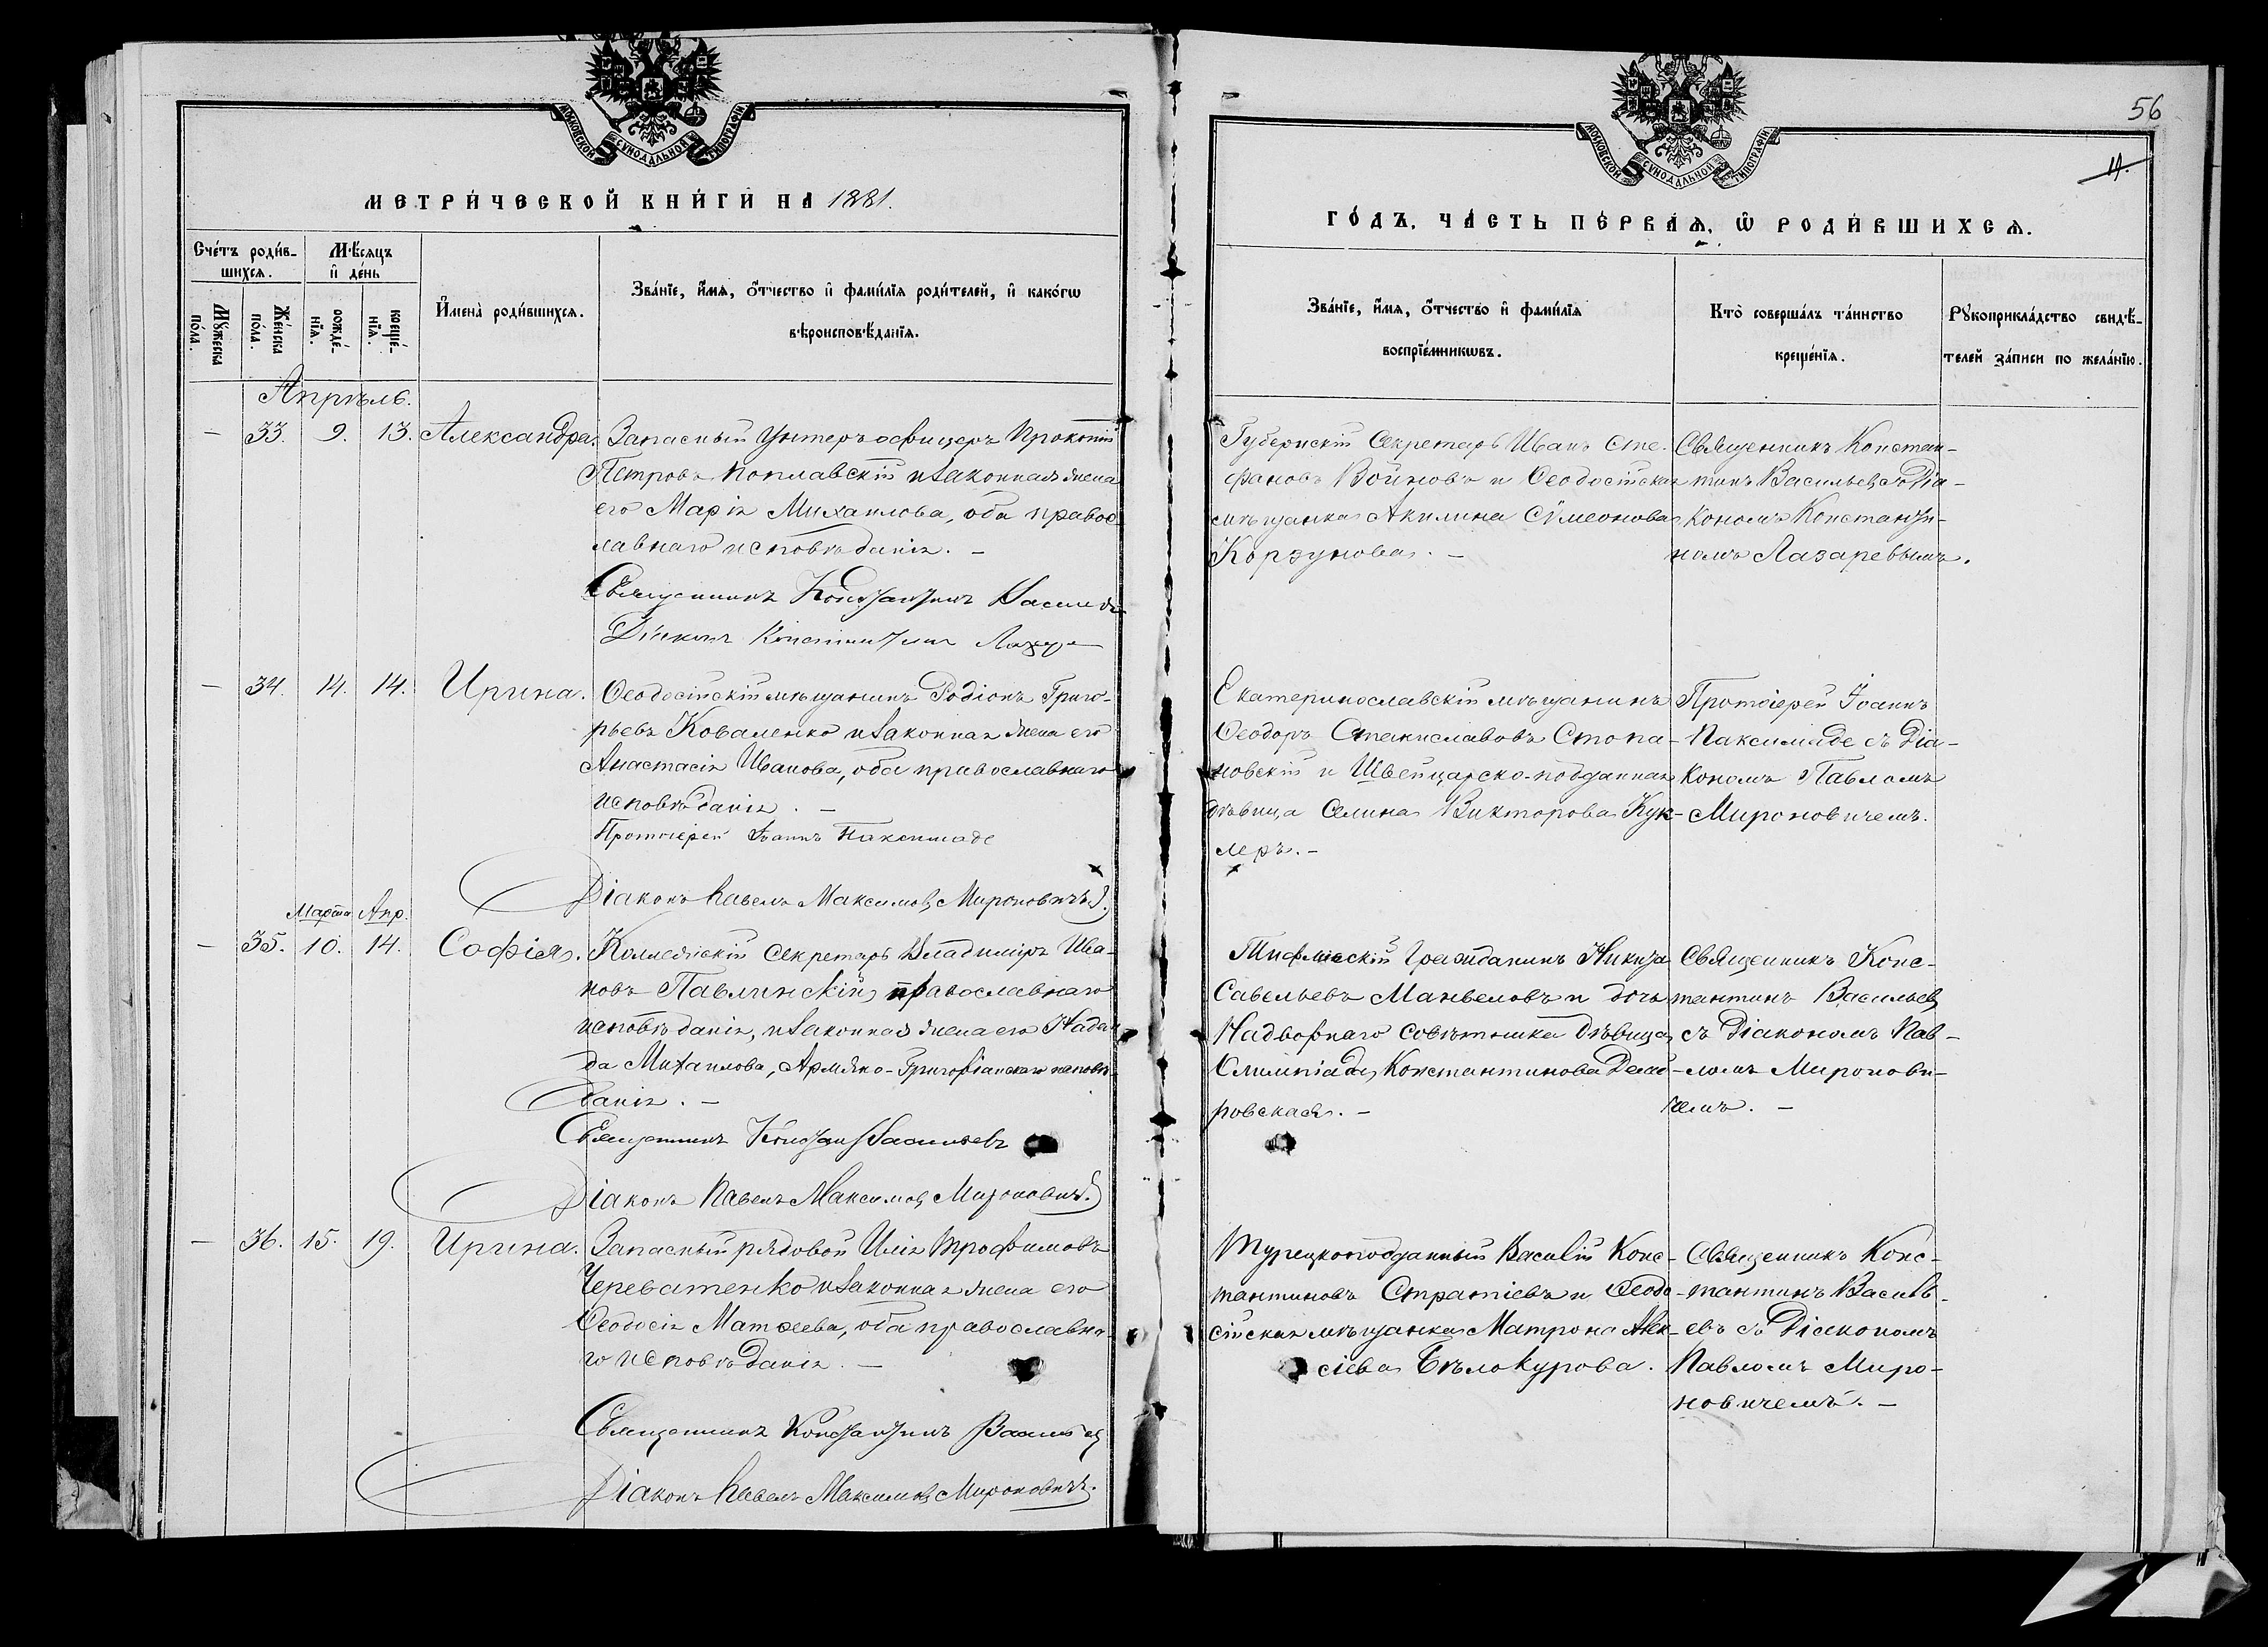 МОСКОВСКОЙ СѴНОДАЛЬНОЙ ТИПОГРАФІИ
МЕТРИ́ЧЕСКОЙ КНИ́ГИ НА 1881.
Сче́тъ роди́в-
шихсѧ.
Мѣ́сѧцъ
и҆ де́нь
Мꙋ́жеска по́ла.
Же́нска по́ла.
рожде́-
нїѧ.
креще́-
нїѧ.
И҆мена̀ роди́вшихсѧ.
Зва́нїе, и҆́мѧ, ѻ҆́тчество и҆ фами́лїѧ роди́телей, и҆ како́гѡ
вѣроисповѣ́данїѧ.
Апрѣль.
— 33. 9. 13. Александра. Запасный унтеръ офицеръ Прокопій
Петровъ Поплавскій и законная жена
его Марія Михаилова, оба правос-
лавнаго исповѣданія. —
Священникъ Константинъ Васильевъ
Діаконъ Константинъ
— 34. 14. 14. Ирина. Ѳеодосійскій мѣщанинъ Родіонъ Григо-
рьевъ Коваленко и законная жена его
Анастасія Иванова, оба православнаго
исповѣданія. —
Протоіерей Іоаннъ Паксимаде
Діаконъ Павелъ Максимовъ Мироновичъ.
Марта Апр.
— 35. 10. 14. Софія. Коллежскій Секретарь Владиміръ Ива-
новъ Павлинскій, православнаго
исповѣданія, и законная жена его Надеж-
да Михаилова, Армяно-Григоріанскаго исповѣ-
данія. —
Священникъ Конст Васильевъ
Діаконъ Павелъ Максимовъ Мироновичъ.
— 36. 15. 19. Ирина. Запасный рядовой Илія Трофимовъ
Череватенко и законная жена его
Ѳеодосія Матѳеева, оба православна-
го исповѣданія. —
Священникъ Константинъ Васильевъ
Діаконъ Павелъ Максимовъ Мироновичъ.
56
МОСКОВСКОЙ СѴНОДАЛЬНОЙ ТИПОГРАФІИ
ГО́ДЪ, ЧА́СТЬ ПЕ́РВАѦ, Ѽ РОДИ́ВШИХСѦ.
Зва́нїе, и҆́мѧ, ѻ҆́тчество и҆ фами́лїѧ
воспрїе́мникѡвъ.
Кто̀ соверша́лъ та́инство
креще́нїѧ.
Рꙋкоприкла́дство свидѣ́-
телей за́писи по жела́нїю.
Губернскій Секретарь Иванъ Сте-
фановъ Войновъ и Ѳеодосійская
мѣщанка Акилина Сѵмеонова
Корзунова. —
Священникъ Констан-
тинъ Васильевъ съ Діа-
кономъ Константи-
номъ Лазаревымъ.
Екатеринославскій мѣщанинъ
Ѳеодоръ Станиславовъ Стопа-
новскій и Швейцарско-подданная
дѣвица Селина Викторова Кук-
леръ. —
Протоіерей Іоаннъ
Паксимаде съ Діа-
кономъ Павломъ
Мироновичемъ.
Тифлисскій Гражданинъ Никита
Савельевъ Манвеловъ и дочь
Надворнаго Совѣтника дѣвица
Олимпіада Константинова
ровская. —
Священникъ Конс-
тантинъ Васильевъ
съ Діакономъ Пав-
ломъ Миронови-
чемъ. —
Турецкоподданный Василій Конс-
тантиновъ Стратіевъ и Ѳеодо-
сійская мѣщанка Матрона Алек-
сіева Бѣлокурова.
Священникъ Конс-
тантинъ Василь-
евъ съ Діакономъ
Павломъ Миро-
новичемъ. —